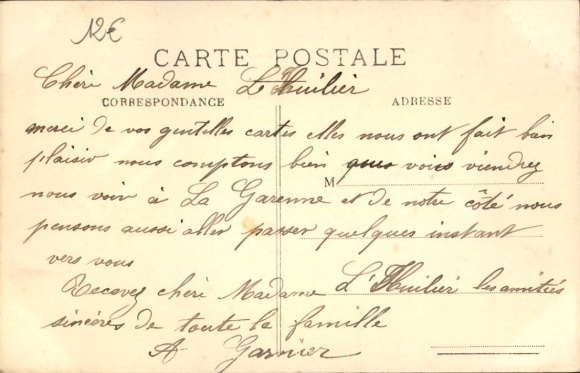 12€
CARTE POSTALE
Chère Madame L'Huilier
CORRESPONDANCE
ADRESSE
merci de vos gentilles cartes elles nous ont fait bien
plaisir nous comptons bien que vous viendrez
M
nous voir à La Garenne et de notre côté nous
pensons aussi aller passer quelques instant
vers vous
Recevez chère Madame L'Huilier les amitiés
sincères de toute la famille
A Garnier